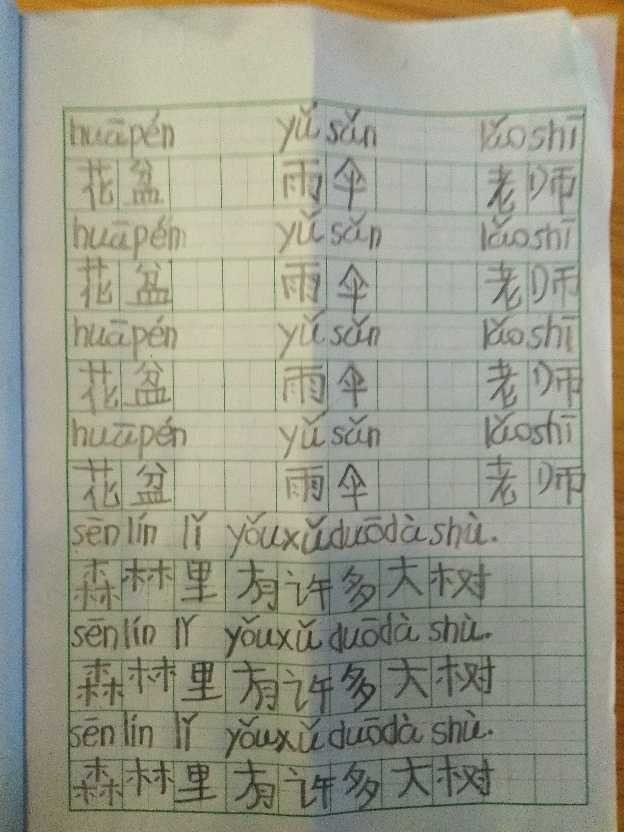 huāpén yǔsǎn lǎoshī
花盆 雨伞 老师
huāpén yǔsǎn lǎoshī
花盆 雨伞 老师
huāpén yǔsǎn lǎoshī
花盆 雨伞 老师
huāpén yǔsǎn lǎoshī
花盆 雨伞 老师
sēnlín lǐ yǒuxǔduōdàshù.
森林里有许多大树
sēnlín lǐ yǒuxǔduōdàshù.
森林里有许多大树
sēnlín lǐ yǒuxǔduōdàshù.
森林里有许多大树